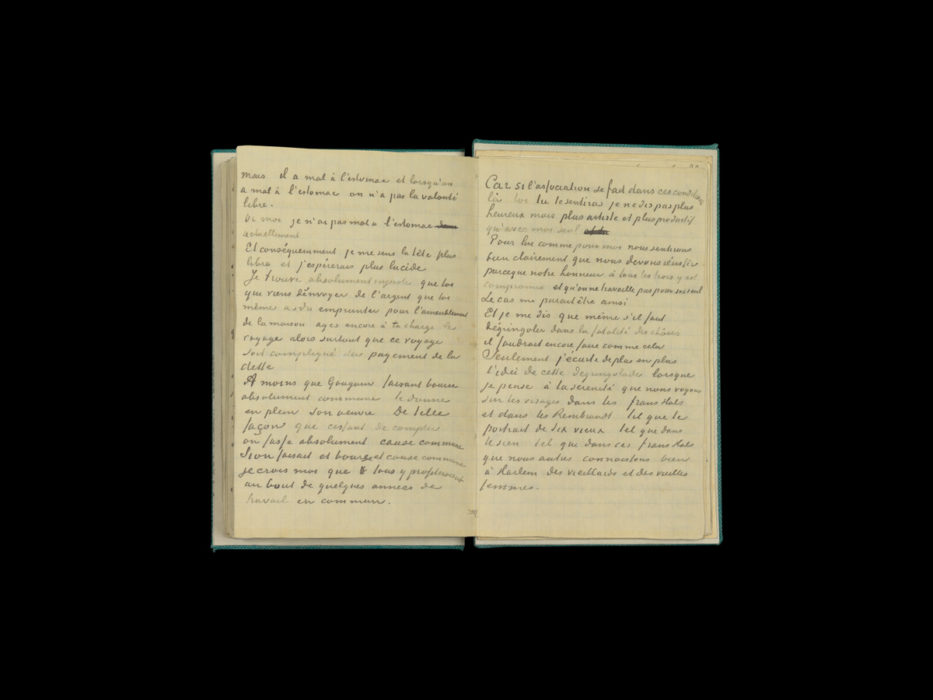 mais il a mal à l'estomac et lorsqu'on
a mal à l'estomac on n'a pas la volonté
libre.
Or moi je n'ai pas mal à l'estomac
actuellement
Et conséquemment je me sens la tête plus
libre et j'espérerais plus lucide
Je trouve absolument injuste que toi
que viens d'envoyer de l'argent que toi
même as du emprunter pour l'ameublement
de la maison ayes encore à ta charge le
voyage alors surtout que ce voyage
soit compliqué du payement de la
dette
A moins que Gauguin faisant bourse
absolument commune te donne
en plein son oeuvre De telle
façon que cessant de compter
on fasse absolument cause commune
Si on faisait et bourse et cause commune
je crois moi que tous y profiteraient
au bout de quelques années de
travail en commun.
Car si l'association se fait dans ces conditions
là toi tu te sentiras je ne dis pas plus
heureux mais plus artiste et plus productif
qu'avec moi seul
Pour lui comme pour moi nous sentirons
bien clairement que nous devons réussir
parceque notre honneur à tous les trois y est
compromis et qu'on ne travaille pas pour soi seul
Le cas me parait être ainsi
Et je me dis que même s'il faut
dégringoler dans la fatalité des choses
il faudrait encore faire comme cela
Seulement j'écarte de plus en plus
l'idée de cette dégringolade lorsque
je pense à la serenité que nous voyons
sur les visages dans les frans Hals
et dans les Rembrandt tel que le
portrait de Six vieux tel que dans
le sien tel que dans ces frans Hals
que nous autres connaissons bien
à Harlem des vieillards et des vieilles
femmes.